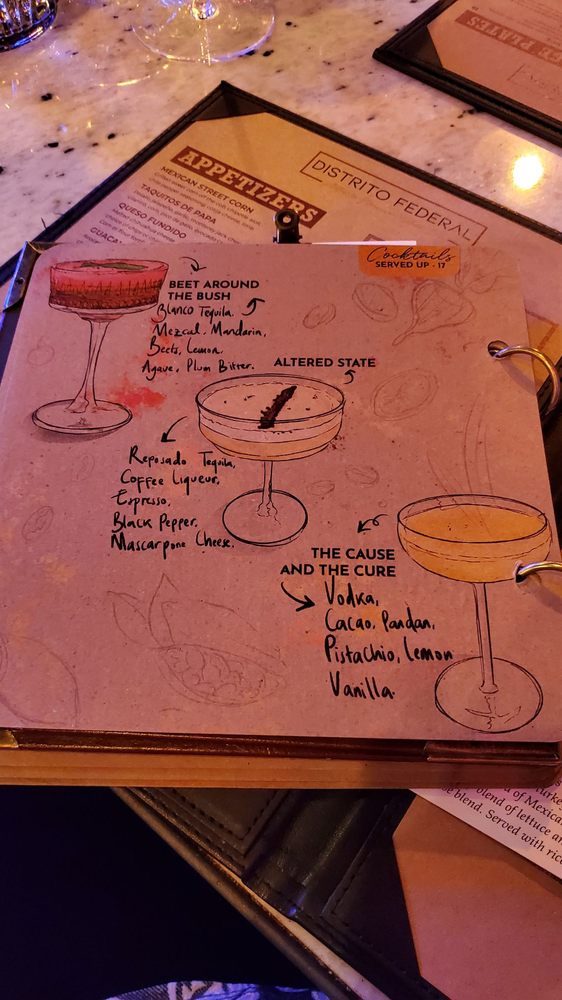 DISTRITO FEDERAL
APPETIZERS
MEXICAN STREET CORN
TAQUITOS DE PAPA
QUESO FUNDIDO
Cocktails
SERVED UP - 17
BEET AROUND
THE BUSH
Blanco Tequila.
Mezcal, Mandarin,
Beets, Lemon.
Agave, Plum Bitter.
ALTERED STATE
Reposado Tequila,
Coffee Liqueur,
Espresso,
Black Pepper,
Mascarpone Cheese.
THE CAUSE
AND THE CURE
Vodka,
Cacao, Pandan,
Pistachio, Lemon
Vanilla.
of Mexica
blend of lettuce an
e blend. Served with rice